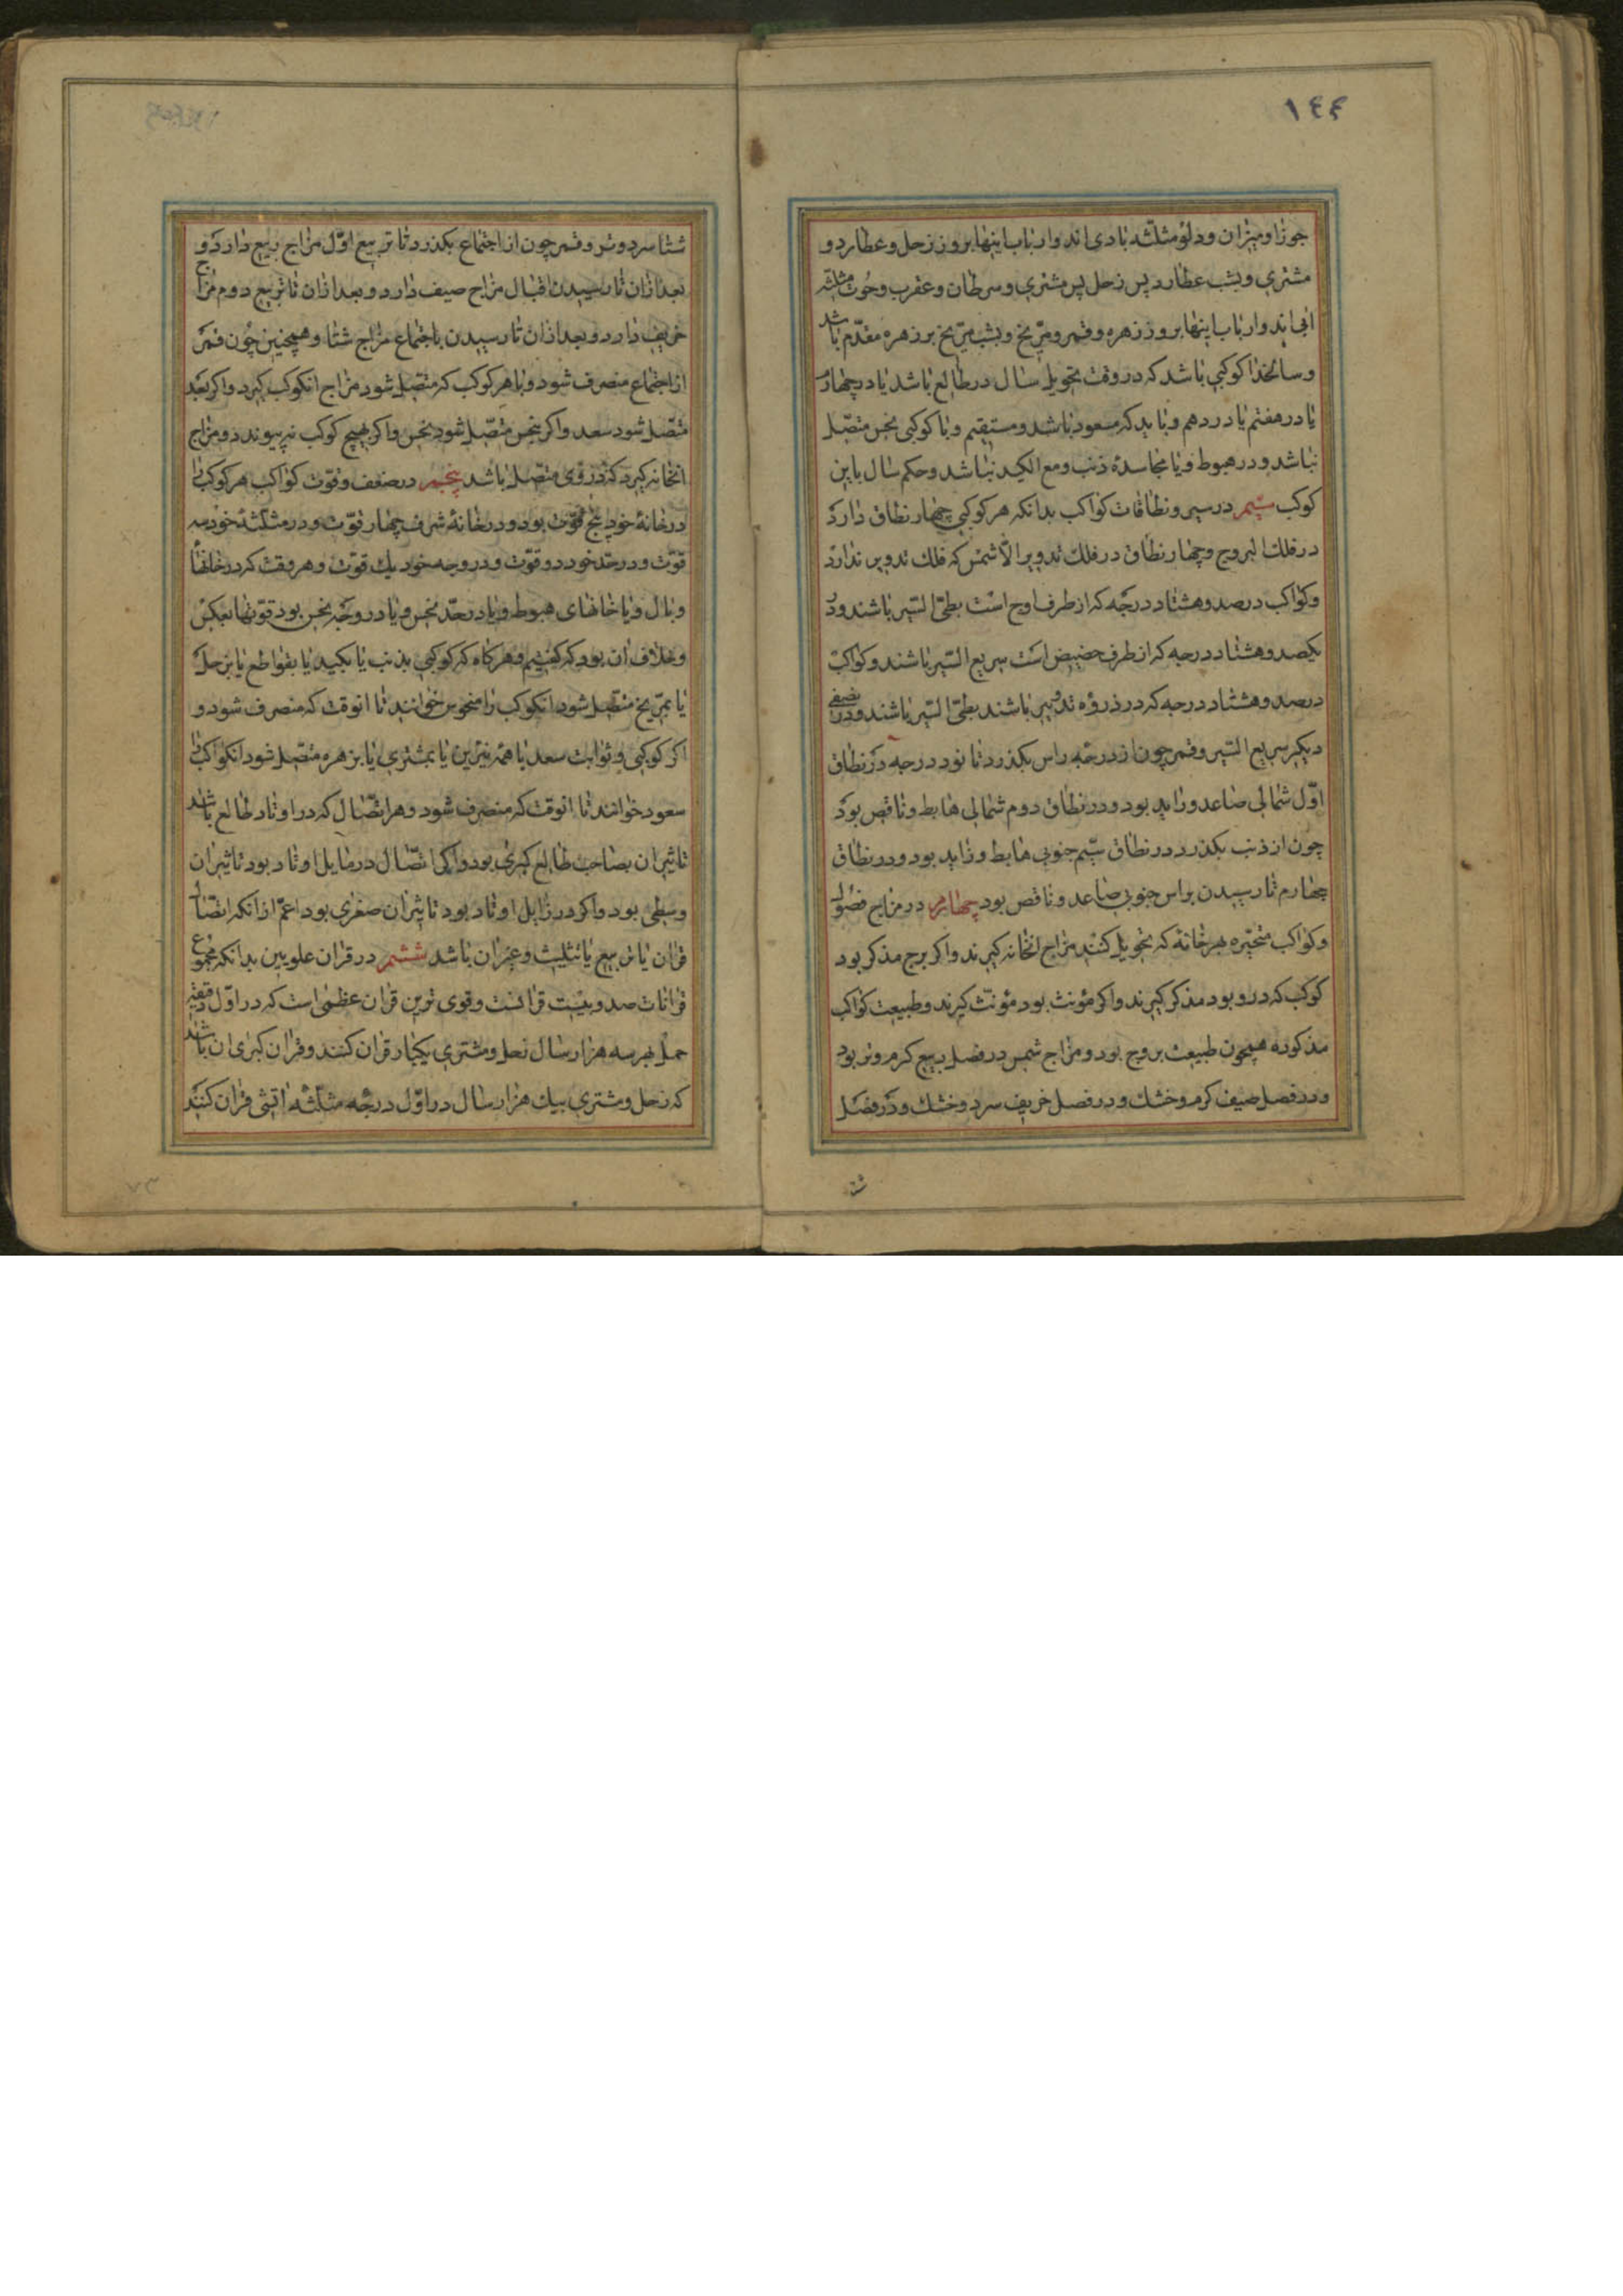 ١٤٤
جوزا و میزان و دلو مثلثه بادی اند و ارباب اینها بروز زحل و عطارد و
مشتری و بشب عطارد پس زحل پس مشتری و سرطان و عقرب و حوت مثلثه
ابی اند و ارباب اینها بروز زهره و قمر و مریخ و بشب مریخ بر زهره مقدم باشد
و سالخذا کوکبی باشد که در وقت تحویل سال در طالع باشد یا در چهارم
یا در هفتم یا در دهم و باید که مسعود باشد و مستقیم و با کوکبی نحس متصل
نباشد و در هبوط و یا مجاسده ذنب و مع الکید نباشد و حکم سال باین
کوکب سیم در سیر و نطاقات کواکب بدانکه هر کوکبی چهار نطاق دارد
در فلک البروج و چهار نطاق در فلک تدویر الا شمس که فلک تدویر ندارد
و کواکب در صد و هشتاد درجه که از طرف اوج است بطئ السیر باشند و در
یکصد و هشتاد درجه که از طرف حضیض است سریع السیر باشند و کواکب
در صد و هشتاد درجه که در ذروه تدویر باشند بطئ السیر باشند و در نصفی
دیگر سریع السیر و قمر چون از درجه راس بکذرد تا نود درجه در نطاق
اول شمالی صاعد و زاید بود و در نطاق دوم شمالی هابط و ناقص بود
چون از ذنب بکذرد در نطاق سیم جنوبی هابط و زاید بود و در نطاق
چهارم تا رسیدن براس جنوبی صاعد و ناقص بود چهارم در مزاج فصول
و کواکب متحیره بهر خانه که تحویل کنند مزاج انخانه کیرند و اکر برج مذکر بود
کوکب که در و بود مذکر کیرند و اکر مؤنث بود مؤنث کیرند و طبیعت کواکب
مذکوره همچون طبیعت بروج بود و مزاج شمس در فصل ربیع کرم و تر بود
و در فصل صیف کرم و خشک و در فصل خریف سرد و خشک و در فصل
شتا سرد و تر و قمر چون از اجتماع بکذرد تا تربیع اول مزاج ربیع دارد و
بعد ازان تا رسیدن اقبال مزاج صیف دارد و بعد ازان تا تربیع دوم مزاج
خریف دارد و بعد ازان تا رسیدن باجتماع مزاج شتا و همچنین چون قمر
از اجتماع منصرف شود و با هر کوکب که متصل شود مزاج انکوکب کیرد و اکر بسعد
متصل شود سعد و اکر بنحس متصل شود نحس و اکر بهیچ کوکب نپیوندد و مزاج
انخانه کیرد که در وی متصل باشد پنجم در ضعف و قوت کواکب هر کوکب را
در خانه خود پنج قوت بود و در خانه شرف چهار قوت و در مثلثه خود سه
قوت و در حد خود دو قوت و در وجه خود یک قوت و هر وقت که در خانهای
وبال و یا خانهای هبوط و یا در حد نحس و یا در وجه نحس بود قوتها بعکس
و خلاف ان بود که کفتیم و هر کاه که کوکبی بذنب یا بکید یا بقواطع یا بزحل
یا بمریخ متصل شود انکوکب را منحوس خوانند تا انوقت که منصرف شود و
اکر کوکبی و ثوابت سعد یا همه نیرین یا بمشتری یا بزهره متصل شود انکواکب را
سعود خوانند تا انوقت که منصرف شود و هر اتصال که در اوتاد طالع باشد
تاثیر ان بصاحب طالع کبری بود و اکر اتصال در مایل اوتاد بود تاثیر ان
وسطی بود و اکر در زایل اوتاد بود تاثیر ان صغری بود اعم از انکه اتصال
قران یا تربیع یا تثلیث و غیر ان باشد ششم در قران علویین بدانکه مجموع
قرانات صد و بیست قرانست و قوی ترین قران عظمی است که در اول دقیقه
حمل بهر سه هزار سال زحل و مشتری یکبار قران کنند و قران کبری ان باشد
که زحل و مشتری بیک هزار سال در اول درجه مثلثه اتشی قران کنند